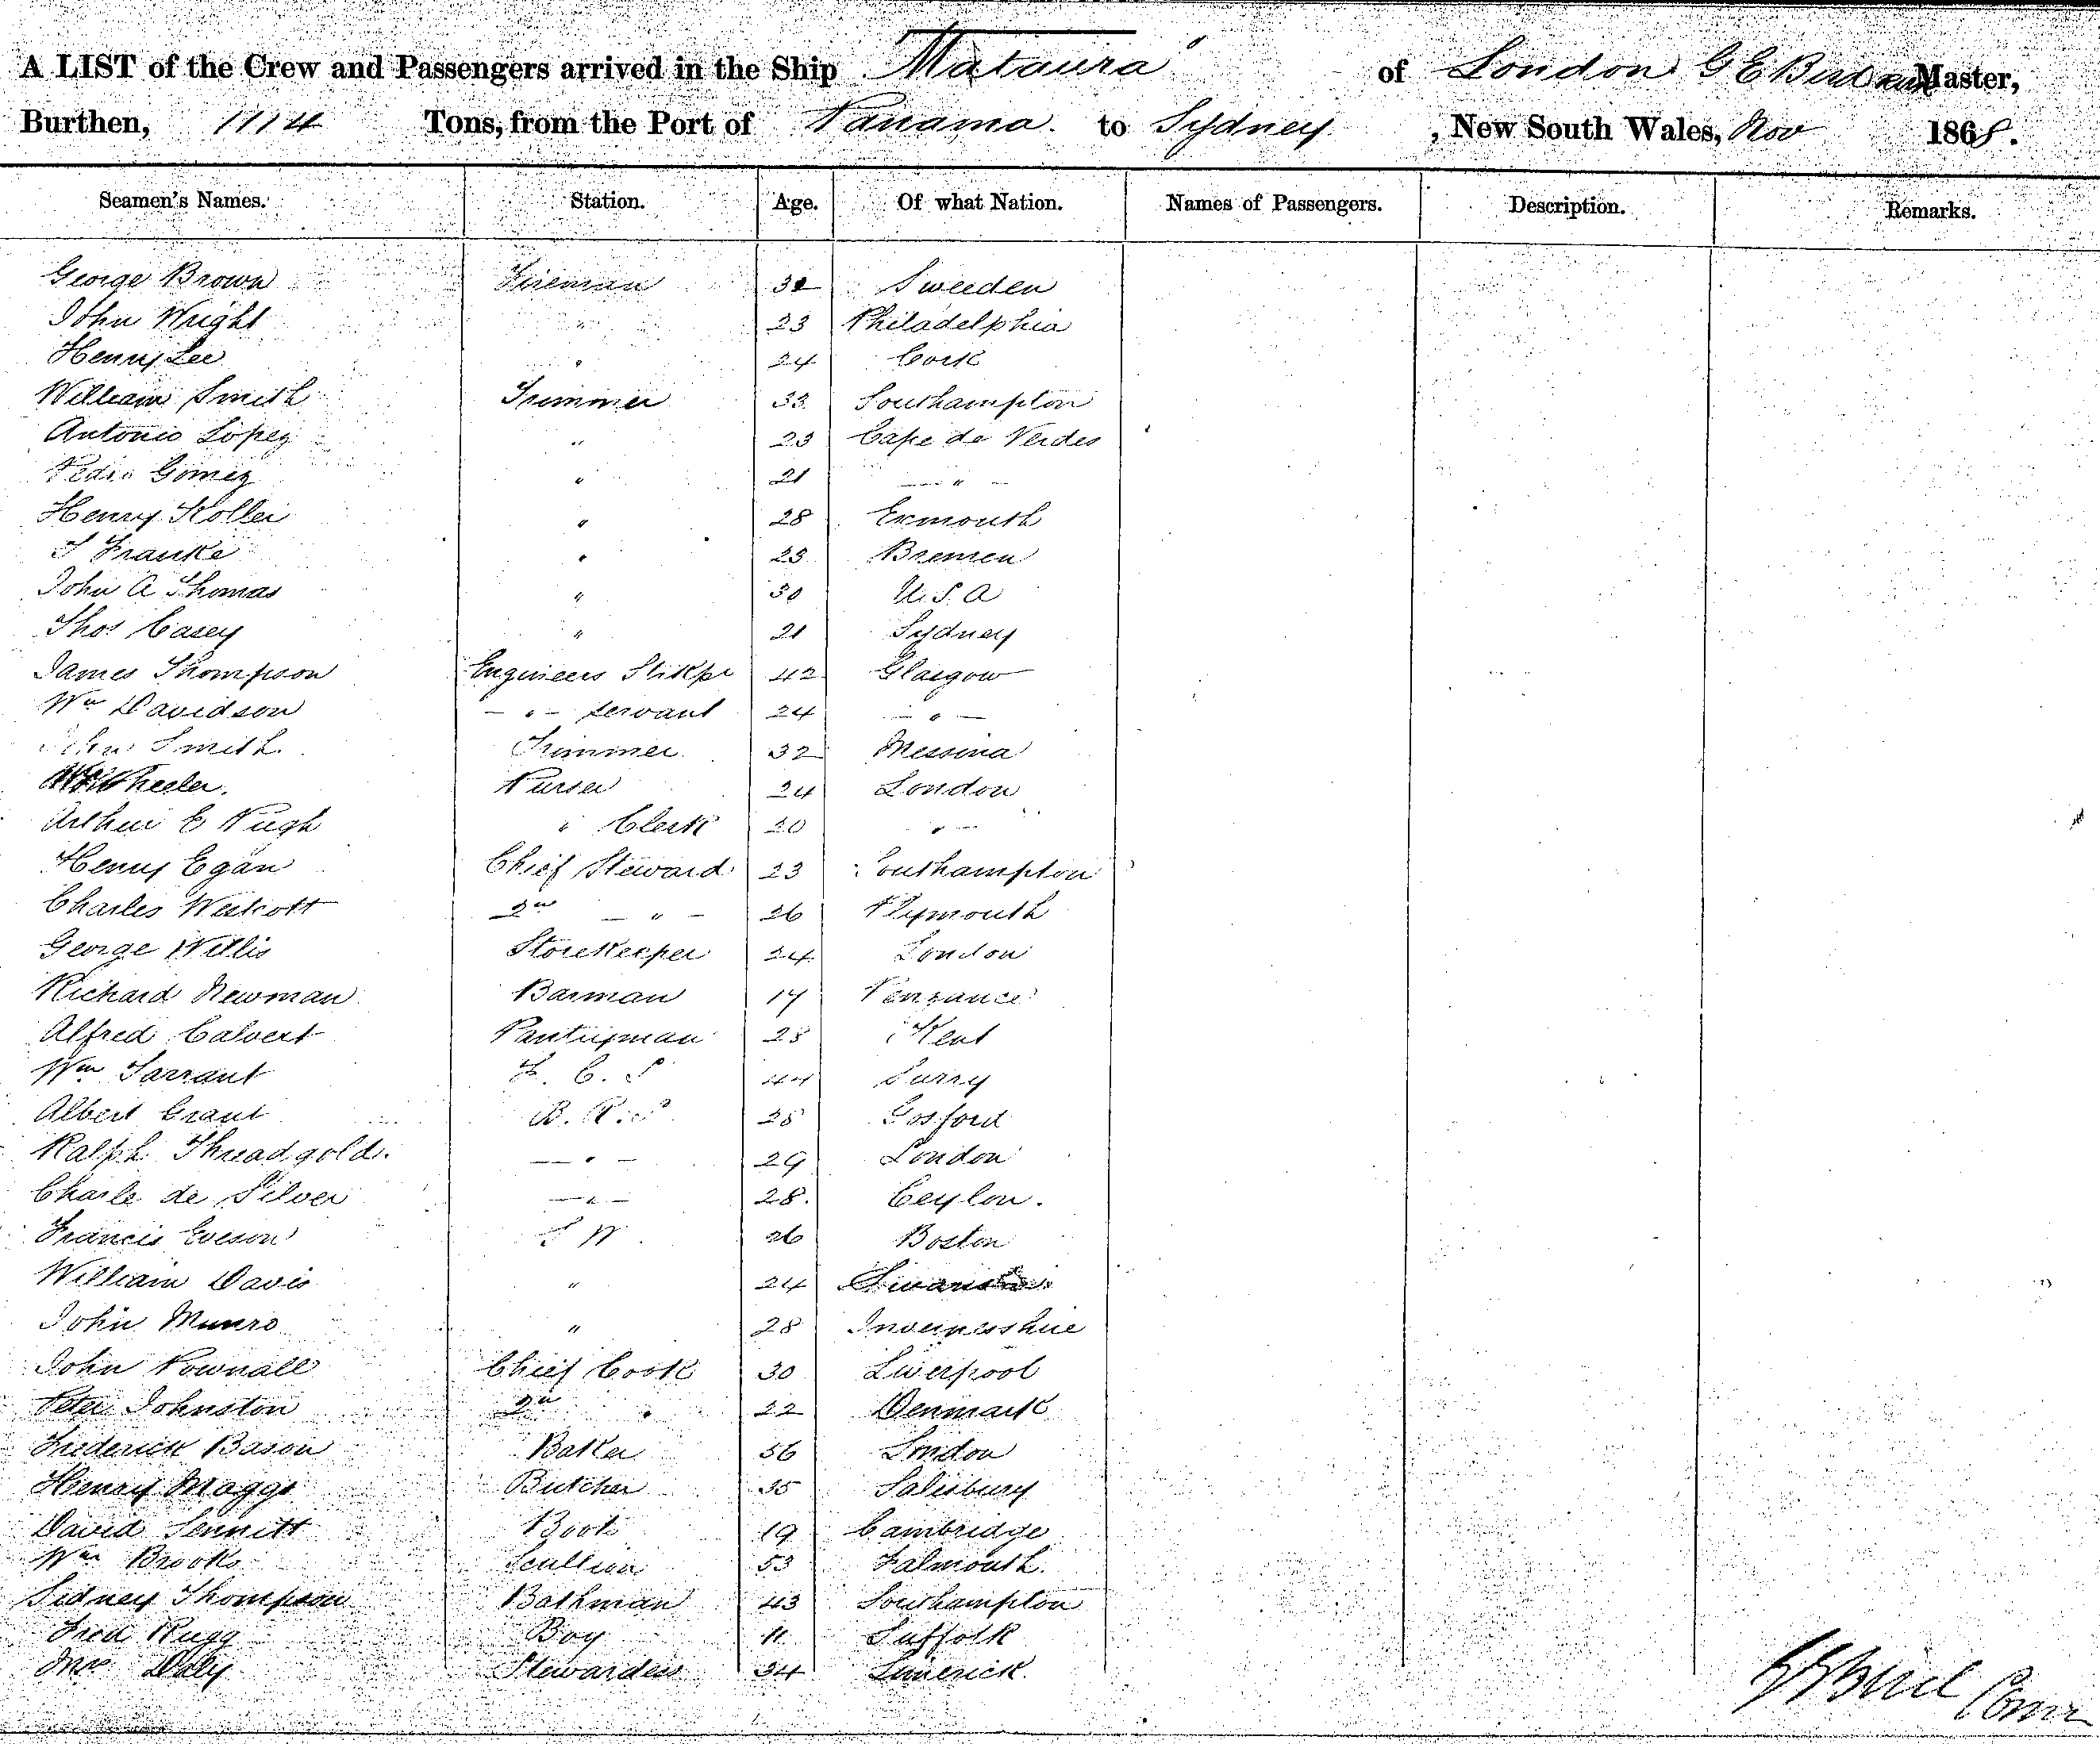 A LIST of the Crew and Passengers arrived in the Ship Mataura of London G E Master,
Burthen, 1714 Tons, from the Port of Panama to Sydney, New South Wales, Nov 1868.
Seamen's Names. Station. Age. Of what Nation. Names of Passengers. Description. Remarks.
George Brown Fireman Sweeden
John Wright " 23 Philadelphia
Henry Lee " 24 Cork
William Smith Trimmer 33 Southampton
Antonio Lopez " 23 Cape de Verdes
Pedro Gomez " 21 — " —
Henry " 28 Exmouth
Franke " 23 Bremen
John A Thomas " 30 U.S.A
Thos Casey " 21 Sydney
James Thompson Engineers Stkpr 42 Glasgow
Wm Davidson — " — servant 24 — " —
John Smith Trimmer 32 Messina
Wheeler. Purser 24 London
Arthur E Pugh " Clerk 20 " —
Henry Egan Chief Steward 23 Southampton
Charles Westcott 2nd — " — 26 Plymouth
George Willis Storekeeper 24 London
Richard Newman Barman 17 Penzance
Alfred Calvert Pantryman 28 Kent
Wm Tarrant C. S 44 Surry
Albert Grant B. R. S 28 Gosford
Ralph Threadgold. — " — 29 London
Charle de Silver — " — 28. Ceylon.
Francis Eveson 26 Boston
William Davis " 24
John Munro " 28 Invernesshire
John Pownall Chief Cook 30 Liverpool
Peter Johnston 2nd " 22 Denmark
Frederick Bason Baker 56 London
Henry Maggs Butcher 35 Salisbury
David Sennitt Boots 19 Cambridge
Wm Brooks Scullion 53 Falmouth.
Sidney Thompson Bathman 43 Southampton
Fred Rugg Boy 11 Suffolk
Mrs Daly Stewardess 34 Limerick.